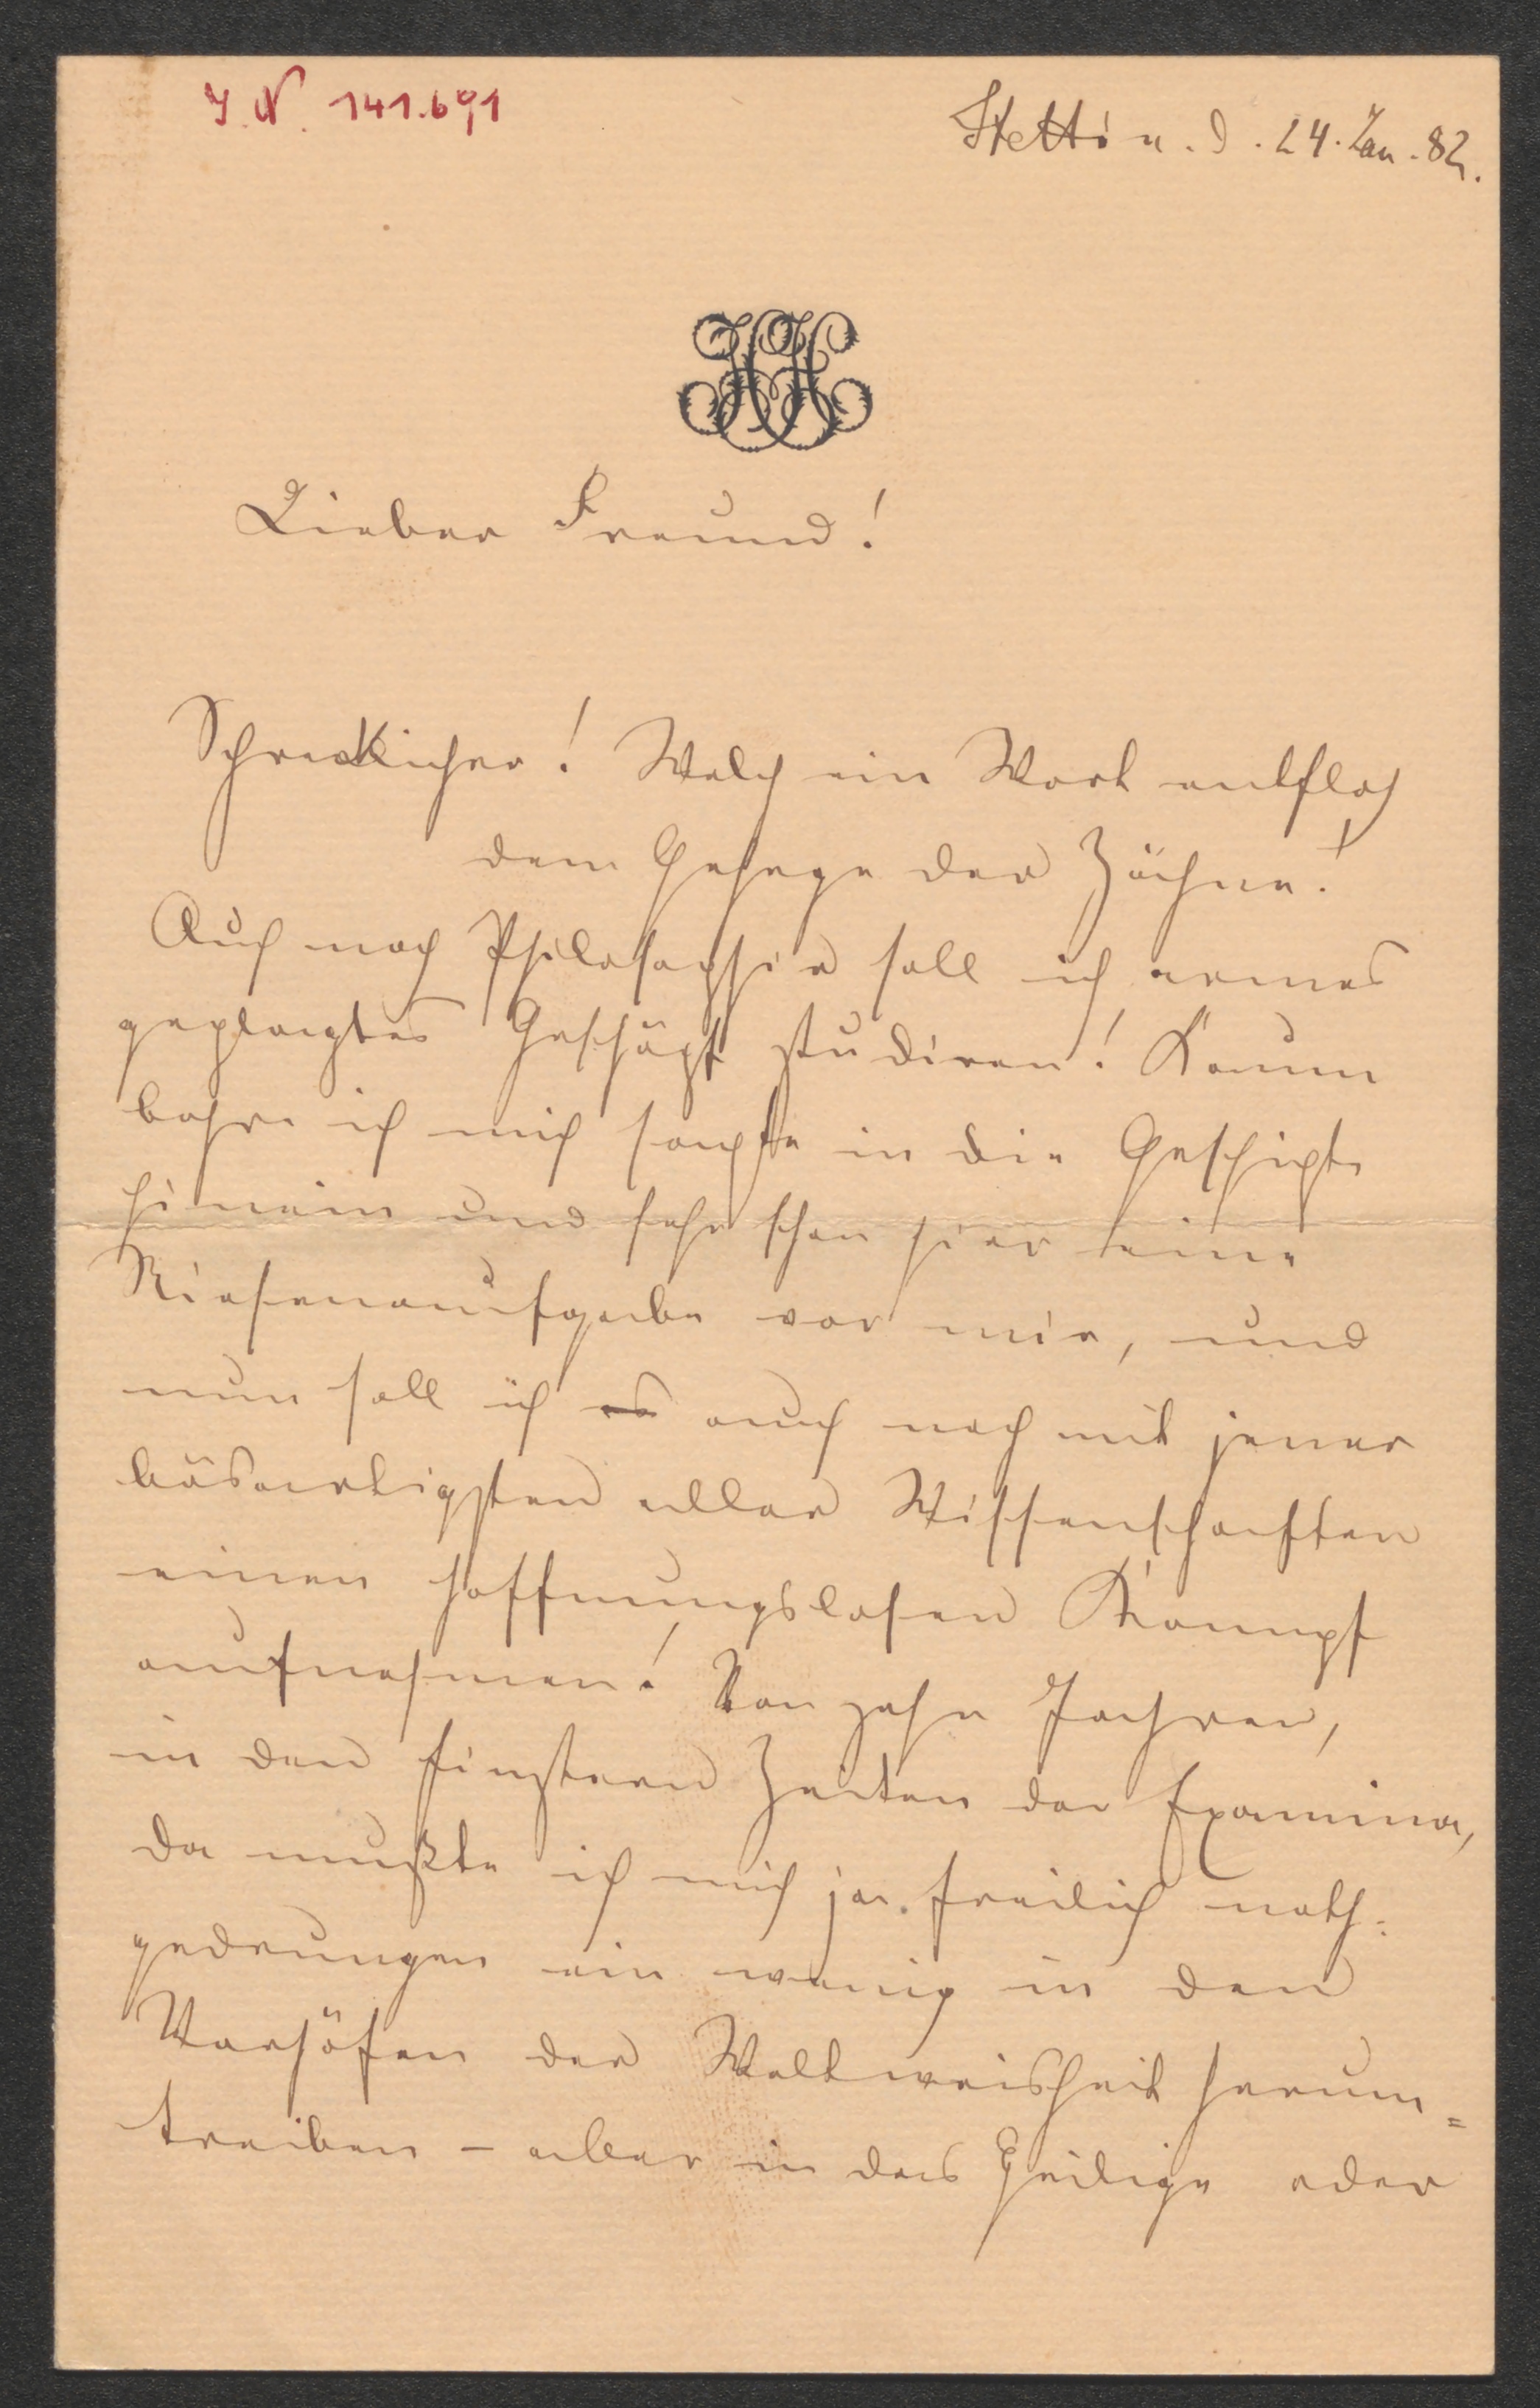 J. N. 141.691
Stettin. d. 24. Jan. 82.
HH
Lieber Freund!
Schrecklicher! Welch ein Wort entfloh
dem Gehege der Zähne!
Auch noch Philosophie soll ich armes
geplagtes Geschöpf studiren! Kaum
bohre ich mich sanfte in die Geschichte
hinein und sehe schon hier eine
Riesenaufgabe vor mir, und
nun soll ich es auch noch mit jener
bösartigsten aller Wissenschaften
einen hoffnungslosen Kampf
aufnehmen! Vor zehn Jahren,
in den finstern Zeiten der Examina,
da mußte ich mich ja freilich noth-
gedrungen ein wenig in den
Vorhöfen der Weltweisheit herum=
treiben – aber in das Heilige oder